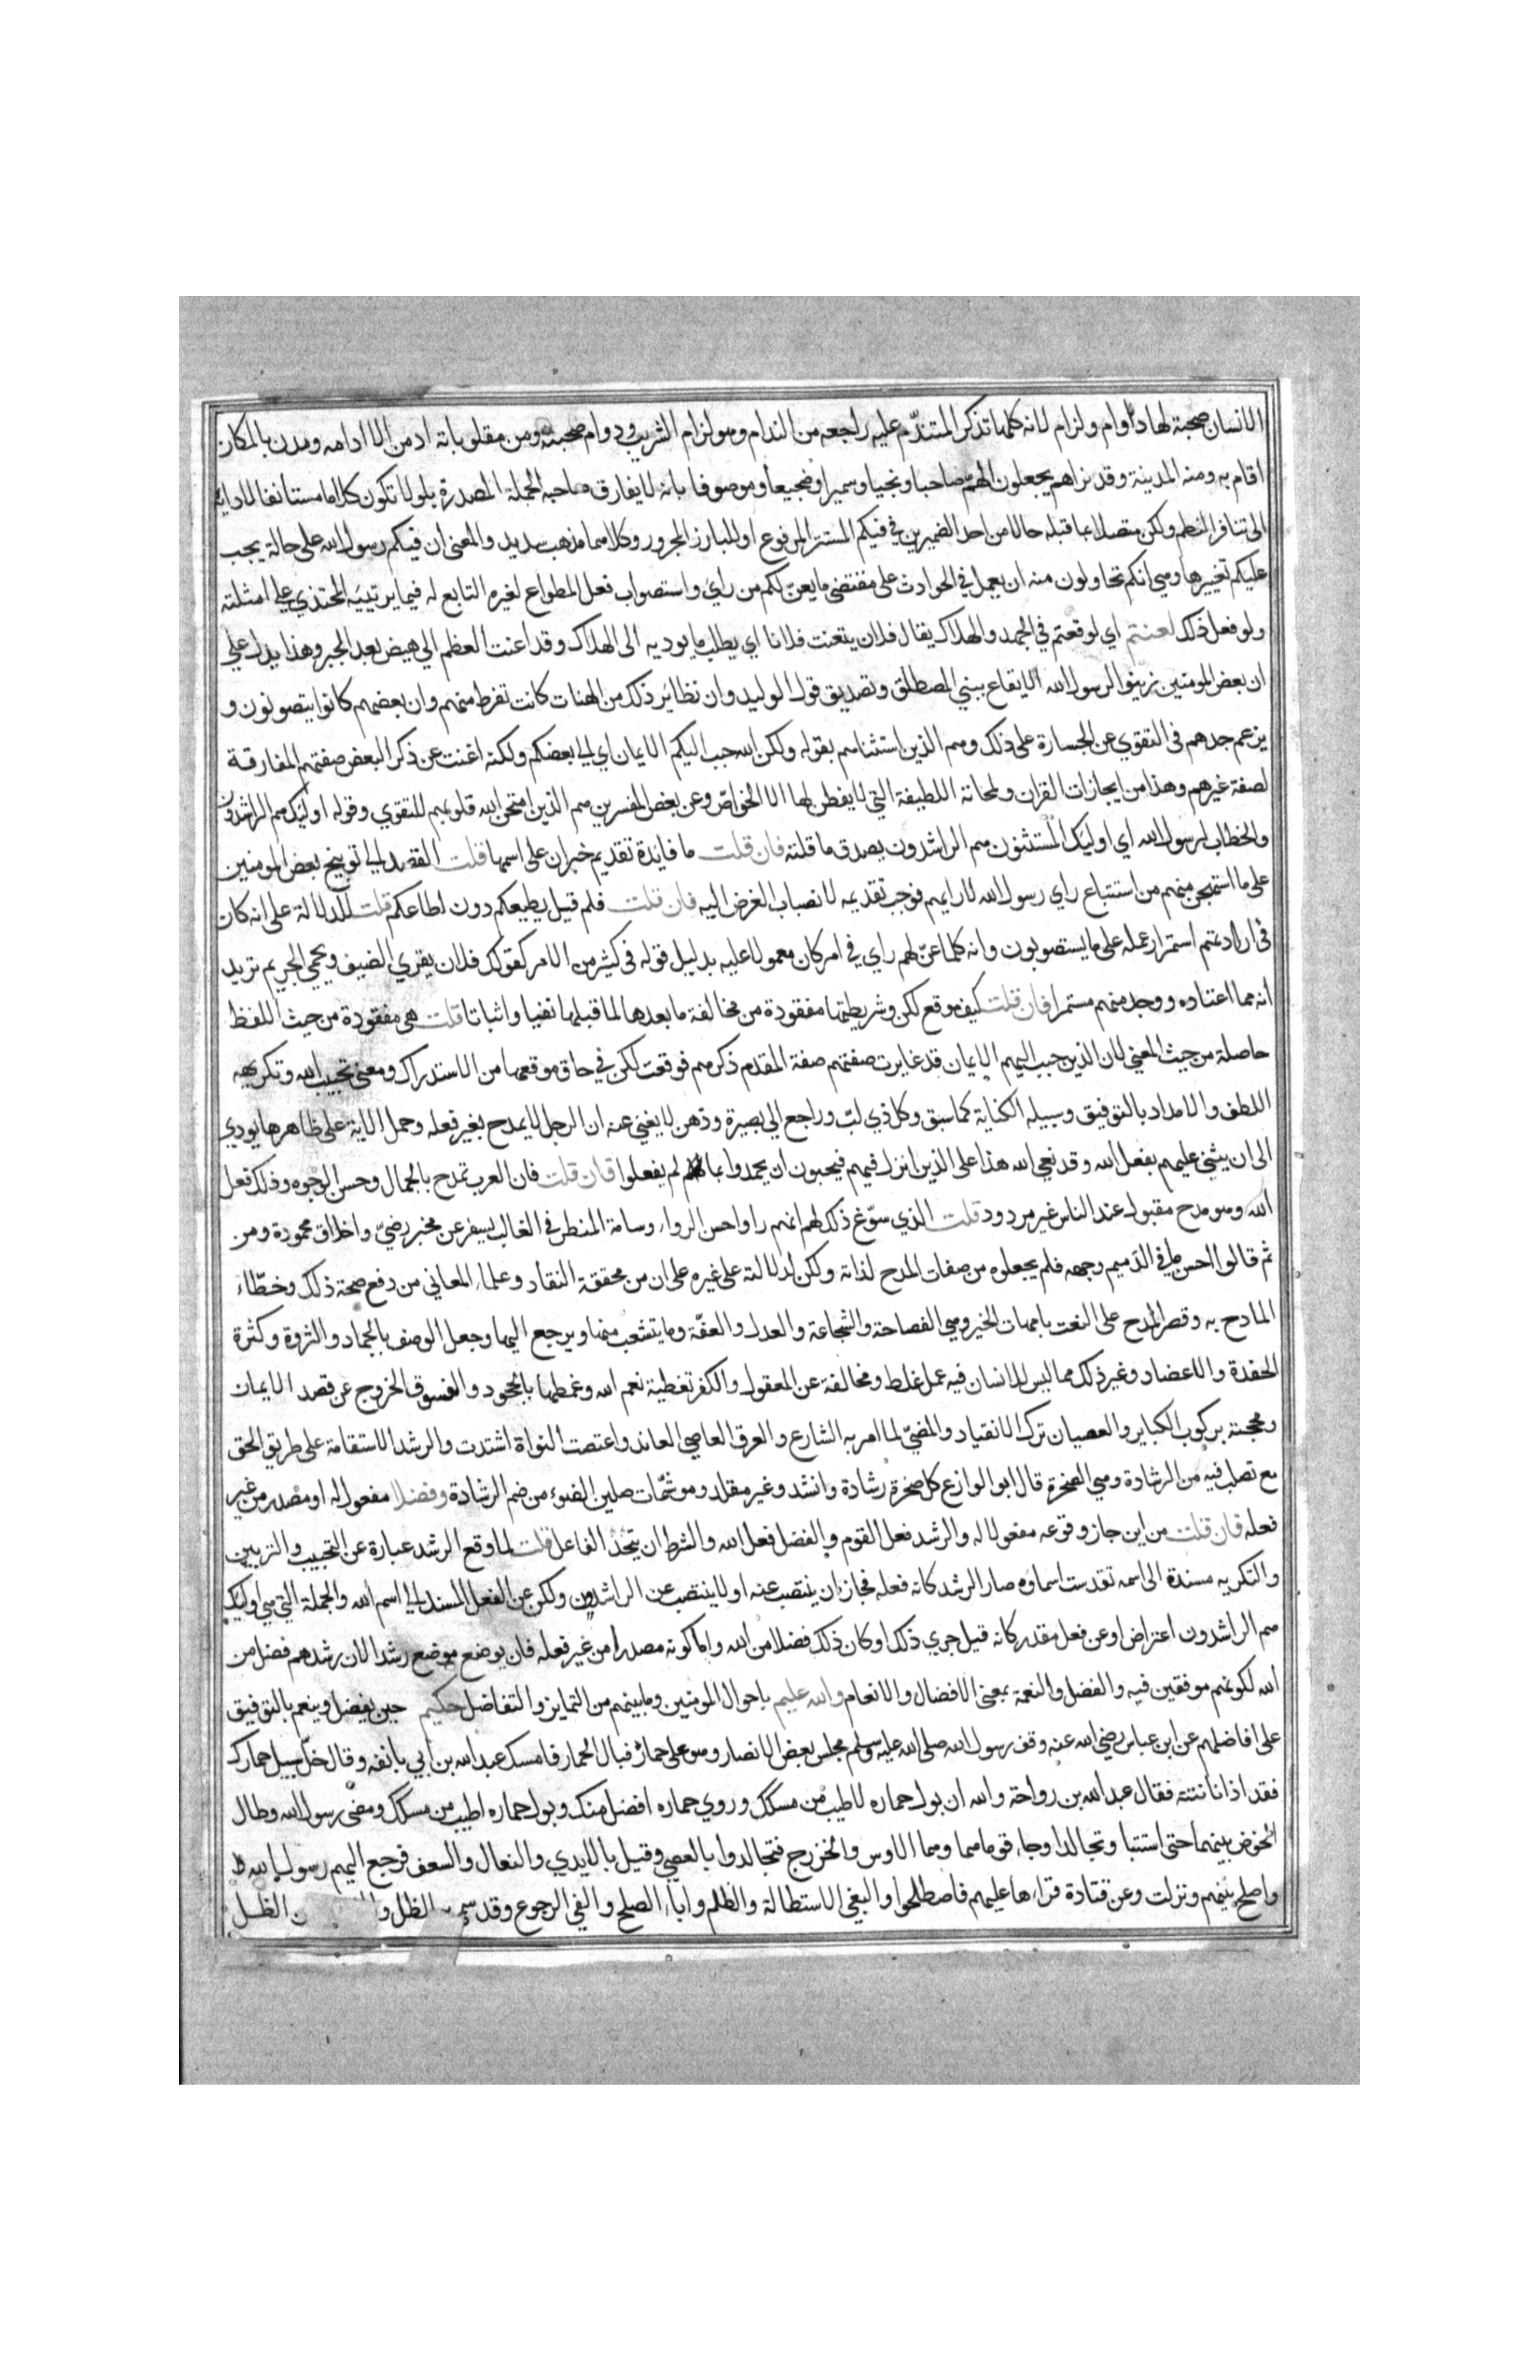 الانسان صحبة لها دوام ولزام لانه كلما تذكر المتندم عليه راجعه من الندام وهو لزام الشريب ودوام صحبته ومن مقلوباته ادمن الامر ادامه ومدن بالمكان
اقام به ومنه المدينة وقد تراهم يجعلون الهم صاحبا ونجيا وسميرا وضجيعا وموصوفا بانه لا يفارق صاحبه الجملة المصدرة بلو لا تكون كلاما مستانفا لادايه
الى تنافر النظم ولكن متصلا بما قبله حالا من احد الضميرين في فيكم المستتر المرفوع او البارز المجرور وكلاهما مذهب سديد والمعنى ان فيكم رسول الله على حالة يجب
عليكم تغييرها وهي انكم تحاولون منه ان يعمل في الحوادث على مقتضى ما يعن لكم من راي واستصواب فعل المطواع لغيره التابع له فيما يرتئيه المحتذي على امثلته
ولو فعل ذلك لعنتم اي لوقعتم في الجهد والهلاك يقال فلان يتعنت فلانا اي يطلب ما يوديه الى الهلاك وقد اعنت العظم الي هيض بعد الجبر وهذا يدل على
ان بعض المومنين زينوا لرسول الله الايقاع ببني المصطلق وتصديق قول الوليد وان نظائر ذلك من الهنات كانت تفرط منهم وان بعضهم كانوا يتصونون و
يزعهم جدهم في التقوي عن الجسارة على ذلك وهم الذين استثناهم بقوله ولكن الله حبب اليكم الايمان اي الى بعضكم ولكنه اغنت عن ذكر البعض صفتهم المفارقة
لصفة غيرهم وهذا من ايجازات القران ولمحاته اللطيفة التي لا يفطن لها الا الخواص وعن بعض المفسرين هم الذين امتحن الله قلوبهم للتقوي وقوله اوليك هم الراشدون
والخطاب لرسول الله اي اوليك المستثنون هم الراشدون يصدق ما قلته فان قلت ما فائدة تقديم خبر ان على اسمها قلت القصد الى توبيخ بعض المومنين
على ما استهجن منهم من استتباع راي رسول الله لارايهم فوجب تقديمه لانصباب الغرض اليه فان قلت فلم قيل يطيعكم دون اطاعكم قلت للدلالة على انه كان
في ارادتهم استمرار عمله على ما يستصوبون وانه كلما عن لهم راي في امر كان معمولا عليه بدليل قوله في كثير من الامر كقولك فلان يقري الضيف ويحمي الحريم تريد
انه مما اعتاده ووجد منهم مستمرا فان قلت كيف موقع لكن وشريطتها مفقودة من مخالفة ما بعدها لما قبلها نفيا واثباتا قلت هي مفقودة من حيث اللفظ
حاصلة من حيث المعنى لان الذين حبب اليهم الايمان قد غايرت صفتهم صفة المقدم ذكرهم فوقعت لكن في حاق موقعها من الاستدراك ومعنى تحبيب الله وتكريهه
اللطف والامداد بالتوفيق وسبيله الكناية كما سبق وكل ذي لب وراجع الى بصيرة وذهن لا يغبى عنه ان الرجل لا يمدح بغير فعله وحمل الاية على ظاهرها يودي
الى ان يثنى عليهم بفعل الله وقد نعى الله هذا على الذين انزل فيهم فيحبون ان يحمدوا بما لم يفعلوا فان قلت فان العرب تمدح بالجمال وحسن الوجوه وذلك فعل
الله وهو مدح مقبول عند الناس غير مردود قلت الذي سوغ ذلك لهم انهم راوا حسن الرواء وسامة المنظر في الغالب يسفر عن مخبر رضي واخلاق محمودة ومن
ثم قالوا احسن ما في الدميم وجهه فلم يجعلوه من صفات المدح لذاته ولكن لدلالته على غيره على ان من محققة النقاد وعلماء المعاني من دفع صحة ذلك وخطاء
المادح به وقصر المدح على النعت بامهات الخير وهي الفصاحة والشجاعة والعدل والعفة وما يتشعب منها ويرجع اليها وجعل الوصف بالجماد والثروة وكثرة
الحفدة والاعضاد وغير ذلك مما ليس للانسان فيه عمل غلط ومخالفة عن المعقول والكفر تغطية نعم الله وغمطها بالجحود والفسوق الخروج عن قصد الايمان
ومحجته بركوب الكباير والعصيان ترك الانقياد والمضي لما امر به الشارع والعرق العاصي العاند واعتصت النواة اشتدت والرشد الاستقامة على طريق الحق
مع تصلب فيه من الرشادة وهي الصخرة قال ابو الوازع كل صخرة رشادة وانشد وغير مقلد وموشمات صلين الضوء من ضم الرشادة وفضلا مفعول له او مصدر من غير
فعله فان قلت من اين جاز وقوعه مفعولا له والرشد فعل القوم والفضل فعل الله والشرط ان يتحد الفاعل قلت لما وقع الرشد عبارة عن التحبيب والتزيين
والتكريه مسندة الى اسمه تقدست اسماوه صار الرشد كانه فعله فجاز ان ينتصب عنه او لا ينتصب عن الراشدون ولكن عن الفعل المسند الى اسم الله والجملة التي هي اوليك
هم الراشدون اعتراض او عن فعل مقدر كانه قيل جري ذلك او كان ذلك فضلا من الله واما كونه مصدرا من غير فعله فان يوضع موضع رشدا لان رشدهم فضل من
الله لكونهم موفقين فيه والفضل والنعمة بمعنى الافضال والانعام والله عليم باحوال المومنين وما بينهم من التمايز والتفاضل حكيم حين يفضل وينعم بالتوفيق
على افاضلهم عن ابن عباس رضي الله عنه وقف رسول الله صلى الله عليه وسلم مجلس بعض الانصار وهو على حمار فبال الحمار فامسك عبد الله بن ابي بانفه وقال خل سبيل حمارك
فقد اذانا نتنه فقال عبد الله بن رواحة والله ان بول حماره لاطيب من مسكك وروي حماره افضل منك وبول حماره اطيب من مسكك ومضى رسول الله وطال
الخوض بينهما حتى استتبا وتجالدا وجاء قوماهما وهما الاوس والخزرج فتجالدوا بالعصي وقيل بالايدي والنعال والسعف فرجع اليهم رسول الله
واصلح بينهم ونزلت وعن قتادة قراءها عليهم فاصطلحوا والبغي الاستطالة والظلم واباء الصلح والفي الرجوع وقد سمي الظل الظل